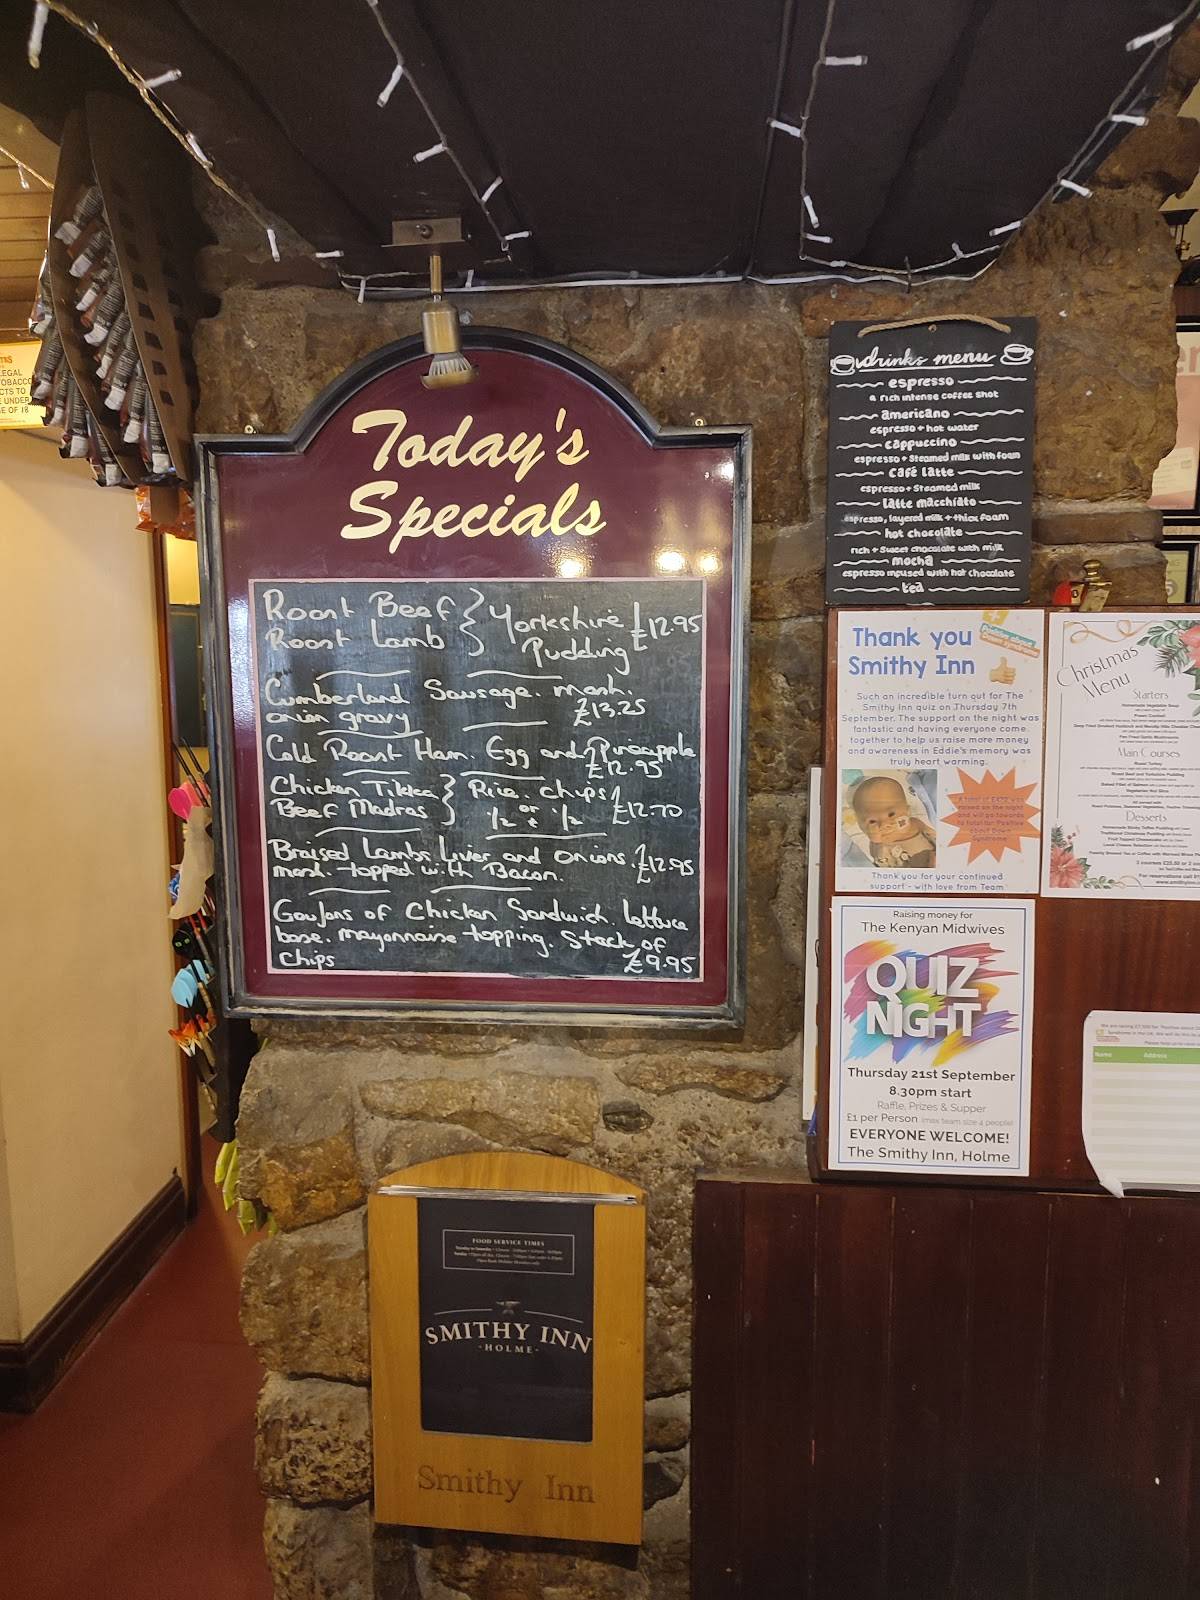 Today's
Specials
Roast Beef } Yorkshire £12.95
Roast Lamb } Pudding
Cumberland Sausage. mash.
onion gravy £13.25
Cold Roast Ham. Egg and Pineapple
£12.95
Chicken Tikka } Rice. chips
Beef Madras } or ½ + ½ £12.70
Braised Lambs Liver and onions. £12.95
mash. topped with Bacon.
Goujons of Chicken Sandwich. lettuce
base. mayonnaise topping. Stack of
chips £9.95
drinks menu
espresso
a rich intense coffee shot
americano
espresso + hot water
cappuccino
espresso + steamed milk with foam
café latte
espresso + steamed milk
latte macchiato
espresso, layered milk + thick foam
hot chocolate
rich + sweet chocolate with milk
mocha
espresso infused with hot chocolate
tea
Thank you
Smithy Inn
Such an incredible turn out for The
Smithy Inn quiz on Thursday 7th
September. The support on the night was
fantastic and having everyone come
together to help us raise more money
and awareness in Eddie's memory was
truly heart warming.
Thank you for your continued
support - with love from Team
Christmas
Menu
Starters
Homemade Vegetable Soup
Prawn Cocktail
Pan Fried Garlic Mushrooms
Main Courses
Roast Turkey
Roast Beef and Yorkshire Pudding
Baked Fillet of Salmon
Vegetarian Nut Slice
Desserts
Homemade Sticky Toffee Pudding
Traditional Christmas Pudding
Fruit Topped Cheesecake
Local Cheese Selection
Raising money for
The Kenyan Midwives
QUIZ
NIGHT
Thursday 21st September
8.30pm start
Raffle, Prizes & Supper
£1 per Person (max team size 4 people)
EVERYONE WELCOME!
The Smithy Inn, Holme
Name Address
FOOD SERVICE TIMES
SMITHY INN
·HOLME·
Smithy Inn